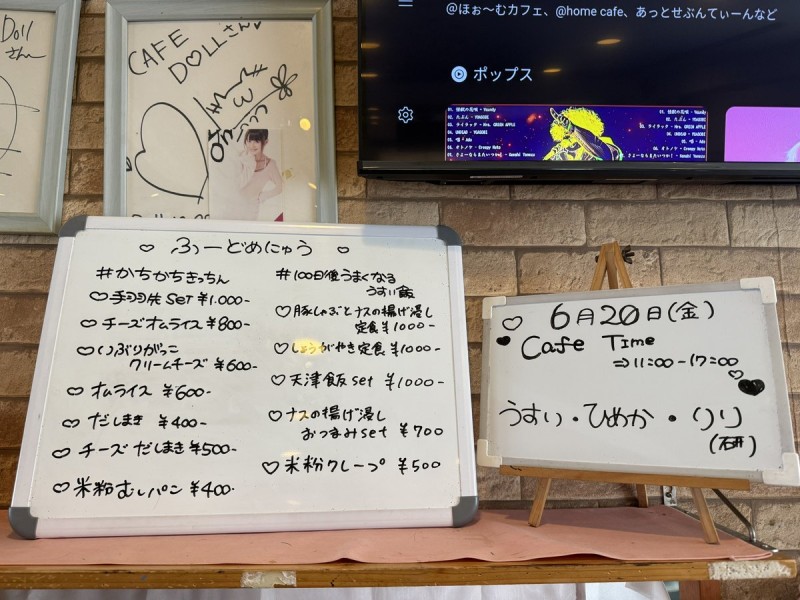 Doll
さん
CAFE
DOLLさん
@ほぉ〜むカフェ、@home cafe、あっとせぶんてぃーんなど
ポップス
01. 怪獣の花唄 - Vaundy
02. たぶん - YOASOBI
03. ライラック - Mrs. GREEN APPLE
04. UNDEAD - YOASOBI
05. 唱 - Ado
06. オトノケ - Creepy Nuts
♡ ふーどめにゅう ♡
#かちかちきっちん
♡手羽先 set ¥1.000-
♡チーズオムライス ¥800-
♡いぶりがっこ
クリームチーズ ¥600-
♡オムライス ¥600-
♡だしまき ¥400-
♡チーズだしまき ¥500-
♡米粉むしパン ¥400-
#100日後うまくなる
うすい飯
♡豚しゃぶとナスの揚げ浸し
定食 ¥1000-
♡しょうがやき定食 ¥1000-
♡天津飯 set ¥1000-
♡ナスの揚げ浸し
おつまみset ¥700
♡米粉クレープ ¥500
♡ 6月20日(金)
♥ Cafe Time
⇒11:00-17:00
うすい・ひめか・りり
(研)